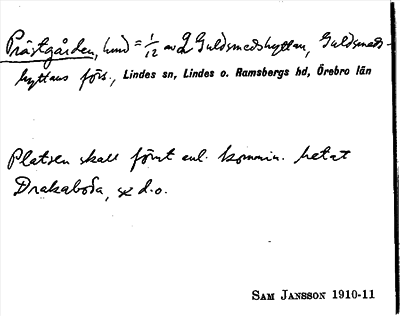 Prästgården, hmd = 1/12 av 2 Guldsmedshyttan, Guldsmeds-
hyttans förs., Lindes sn, Lindes o. Ramsbergs hd, Örebro län
Platsen skall förut enl. kommin. hetat
Drakaboda, se d.o.
SAM JANSSON 1910-11